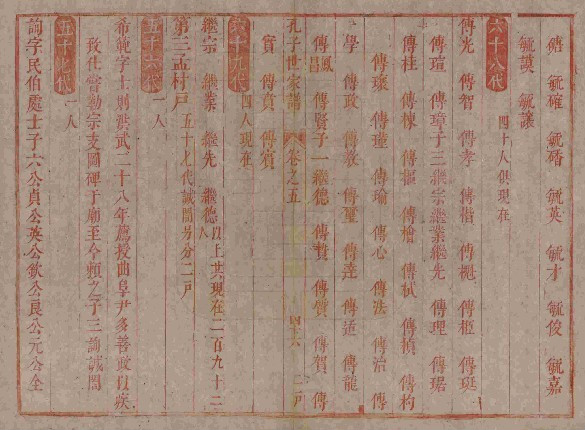 毓 毓確 毓碏 毓英 毓才 毓俊 毓嘉
毓謨 毓讓
六十八代 四十人俱現在
傳光 傳智 傳孝 傳楷 傳樾 傳框 傳珽
傳瑄 傳璋子三繼宗繼業繼先 傳理 傳琚
傳桂 傳棟 傳樞 傳檜 傳軾 傳楨 傳杓
傳瓌 傳瑾 傳瑜 傳心 傳法 傳治 傳
學 傳政 傳敎 傳璽 傳達 傳道 傳龍
傳鳳 傳賢子一繼德 傳贊 傳質 傳賀 傳
昌
孔子世家譜 卷之五 四十六 二戶
實 傳貴 傳賓
六十九代 四人現在
繼宗 繼業 繼先 繼德以上共現在二百九十三
人
第三孟村戶 五十七代誠閭另分二戶
五十六代 一人
希範字士則洪武二十八年薦授曲阜尹多善政以疾
致仕嘗勒宗支圖碑于廟至今賴之子三詢誠閭
五十七代 一人
詢字民伯處士子六公貞公英公欽公良公元公全